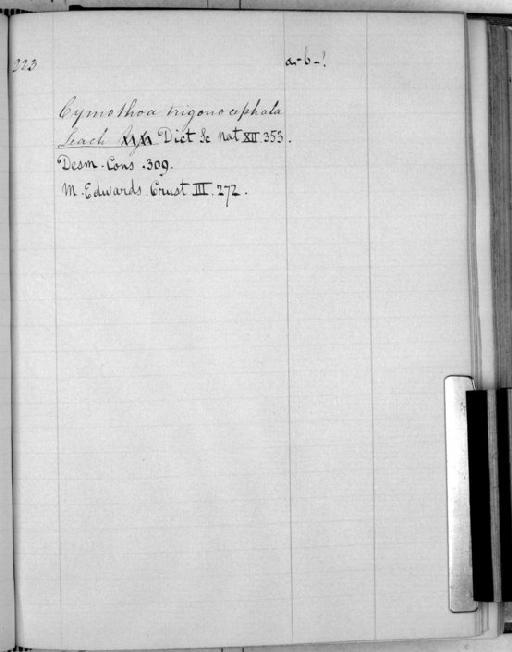 223
a-b-!
Cymothoa trigonocephala
Leach Dict Sc nat XII 353.
Desm. Cons. 309.
M. Edwards. Crust III. 272.